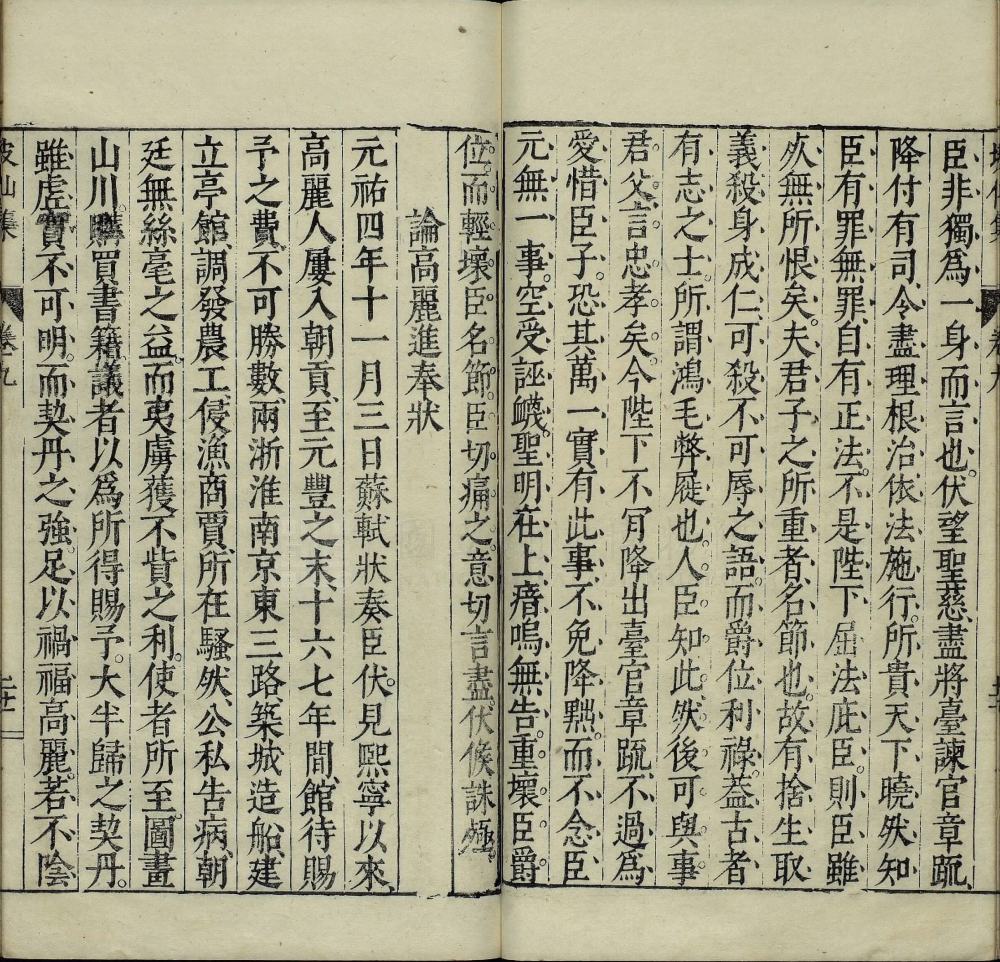 臣非獨爲一身而言也伏望聖慈盡將臺諫官章疏
降付有司令盡理根治依法施行所貴天下曉然知
臣有罪無罪自有正法不是陛下屈法庇臣則臣雖
死無所恨矣夫君子之所重者名節也故有捨生取
義殺身成仁可殺不可辱之語而爵位利祿蓋古者
有志之士所謂鴻毛弊屣也人臣知此然後可與事
君父言忠孝矣今陛下不肎降出臺官章疏不過爲
愛惜臣子恐其萬一實有此事不免降黜而不念臣
元無一事空受誣衊聖明在上瘖嗚無告重壞臣爵
位而輕壞臣名節臣切痛之意切言盡伏候誅殛
論高麗進奉狀
元祐四年十一月三日蘇軾狀奏臣伏見熙寧以來
高麗人屢入朝貢至元豐之末十六七年間館待賜
予之費不可勝數兩浙淮南京東三路築城造船建
立亭館調發農工侵漁商賈所在騷然公私告病朝
廷無絲毫之益而夷虜獲不貲之利使者所至圖畫
山川購買書籍議者以爲所得賜予大半歸之契丹
雖虛實不可明而契丹之強足以禍福高麗若不陰
坡山集 卷九